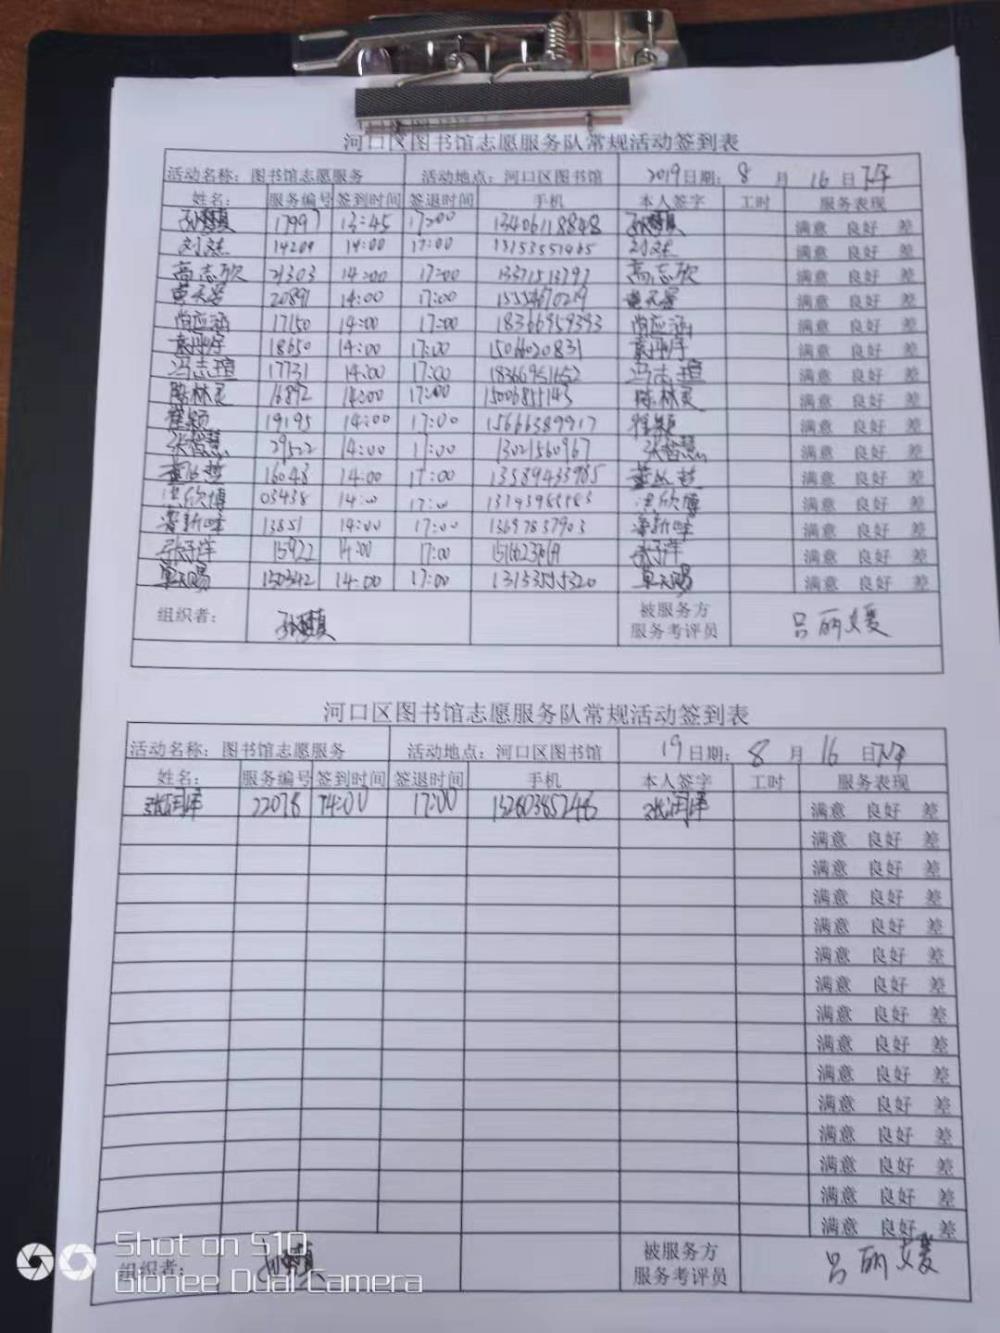 河口区图书馆志愿服务队常规活动签到表
活动名称：图书馆志愿服务 活动地点：河口区图书馆 2019日期：8月16日下午
姓名： 服务编号 签到时间 签退时间 手机 本人签字 工时 服务表现
17997 13:45 17:00 13406118848 满意 良好 差
刘文杰 14209 14:00 17:00 13153551465 刘文杰 满意 良好 差
高志欣 21303 14:00 17:00 高志欣 满意 良好 差
20891 14:00 17:00 满意 良好 差
尚应涵 17150 14:00 17:00 18366959393 尚应涵 满意 良好 差
18650 14:00 17:00 15066020831 满意 良好 差
冯志瑄 17731 14:00 17:00 18366951652 冯志瑄 满意 良好 差
陈林灵 16892 14:00 17:00 15006855143 陈林灵 满意 良好 差
崔颖 19195 14:00 17:00 15666589917 崔颖 满意 良好 差
张智慧 29522 14:00 17:00 13021560967 张智慧 满意 良好 差
16048 14:00 17:00 13589433985 满意 良好 差
03438 14:00 17:00 满意 良好 差
13851 14:00 17:00 13697837903 满意 良好 差
张子洋 15922 14:00 17:00 张子洋 满意 良好 差
14:00 17:00 满意 良好 差
组织者： 被服务方 吕丽媛
服务考评员
河口区图书馆志愿服务队常规活动签到表
活动名称：图书馆志愿服务 活动地点：河口区图书馆 19日期：8月16日下午
姓名： 服务编号 签到时间 签退时间 手机 本人签字 工时 服务表现
张润泽 22078 14:00 17:00 张润泽 满意 良好 差
满意 良好 差
满意 良好 差
满意 良好 差
满意 良好 差
满意 良好 差
满意 良好 差
满意 良好 差
满意 良好 差
满意 良好 差
满意 良好 差
满意 良好 差
满意 良好 差
满意 良好 差
满意 良好 差
Shot on S10
组织者： 被服务方 吕丽媛
服务考评员
Gionee Dual Camera